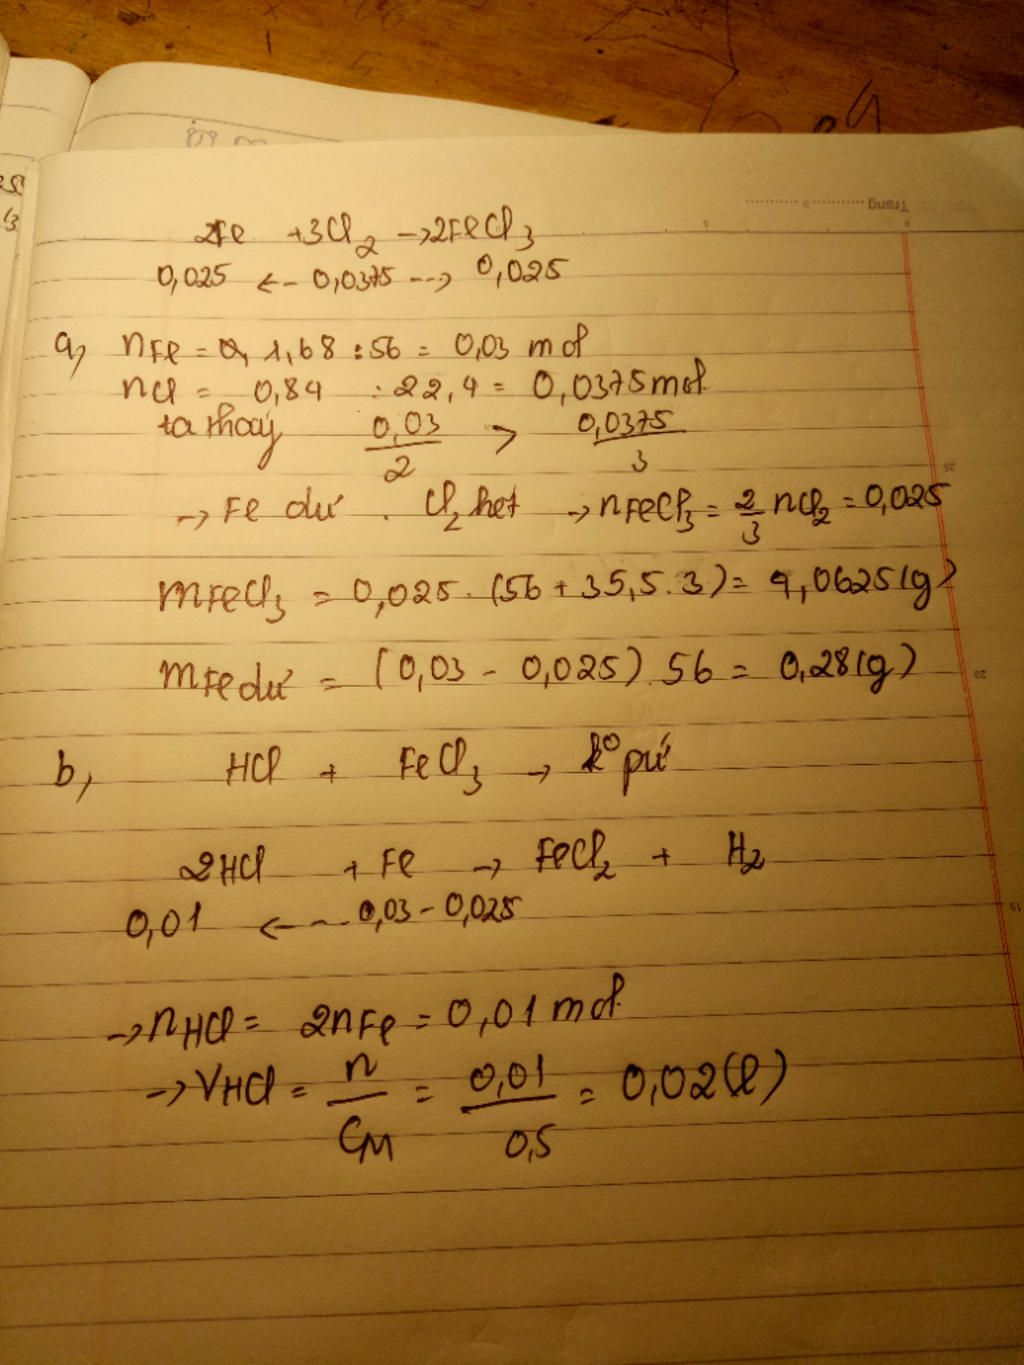 2Fe + 3Cl2 → 2FeCl3
0,025 ←- 0,0375 --→ 0,025
a, nFe = 1,68 : 56 = 0,03 mol
nCl = 0,84 : 22,4 = 0,0375 mol
ta thấy 0,03/2 > 0,0375/3
→ Fe dư . Cl2 hết → nFeCl3 = 2/3 nCl2 = 0,025
mFeCl3 = 0,025 . (56 + 35,5 . 3) = 4,0625 (g)
mFe dư = (0,03 - 0,025) . 56 = 0,28 (g)
b, HCl + FeCl3 → k° pứ
2HCl + Fe → FeCl2 + H2
0,01 ←-- 0,03 - 0,025
→ nHCl = 2nFe = 0,01 mol
→ VHCl = n/CM = 0,01/0,5 = 0,02 (l)
Trang
25
20
15